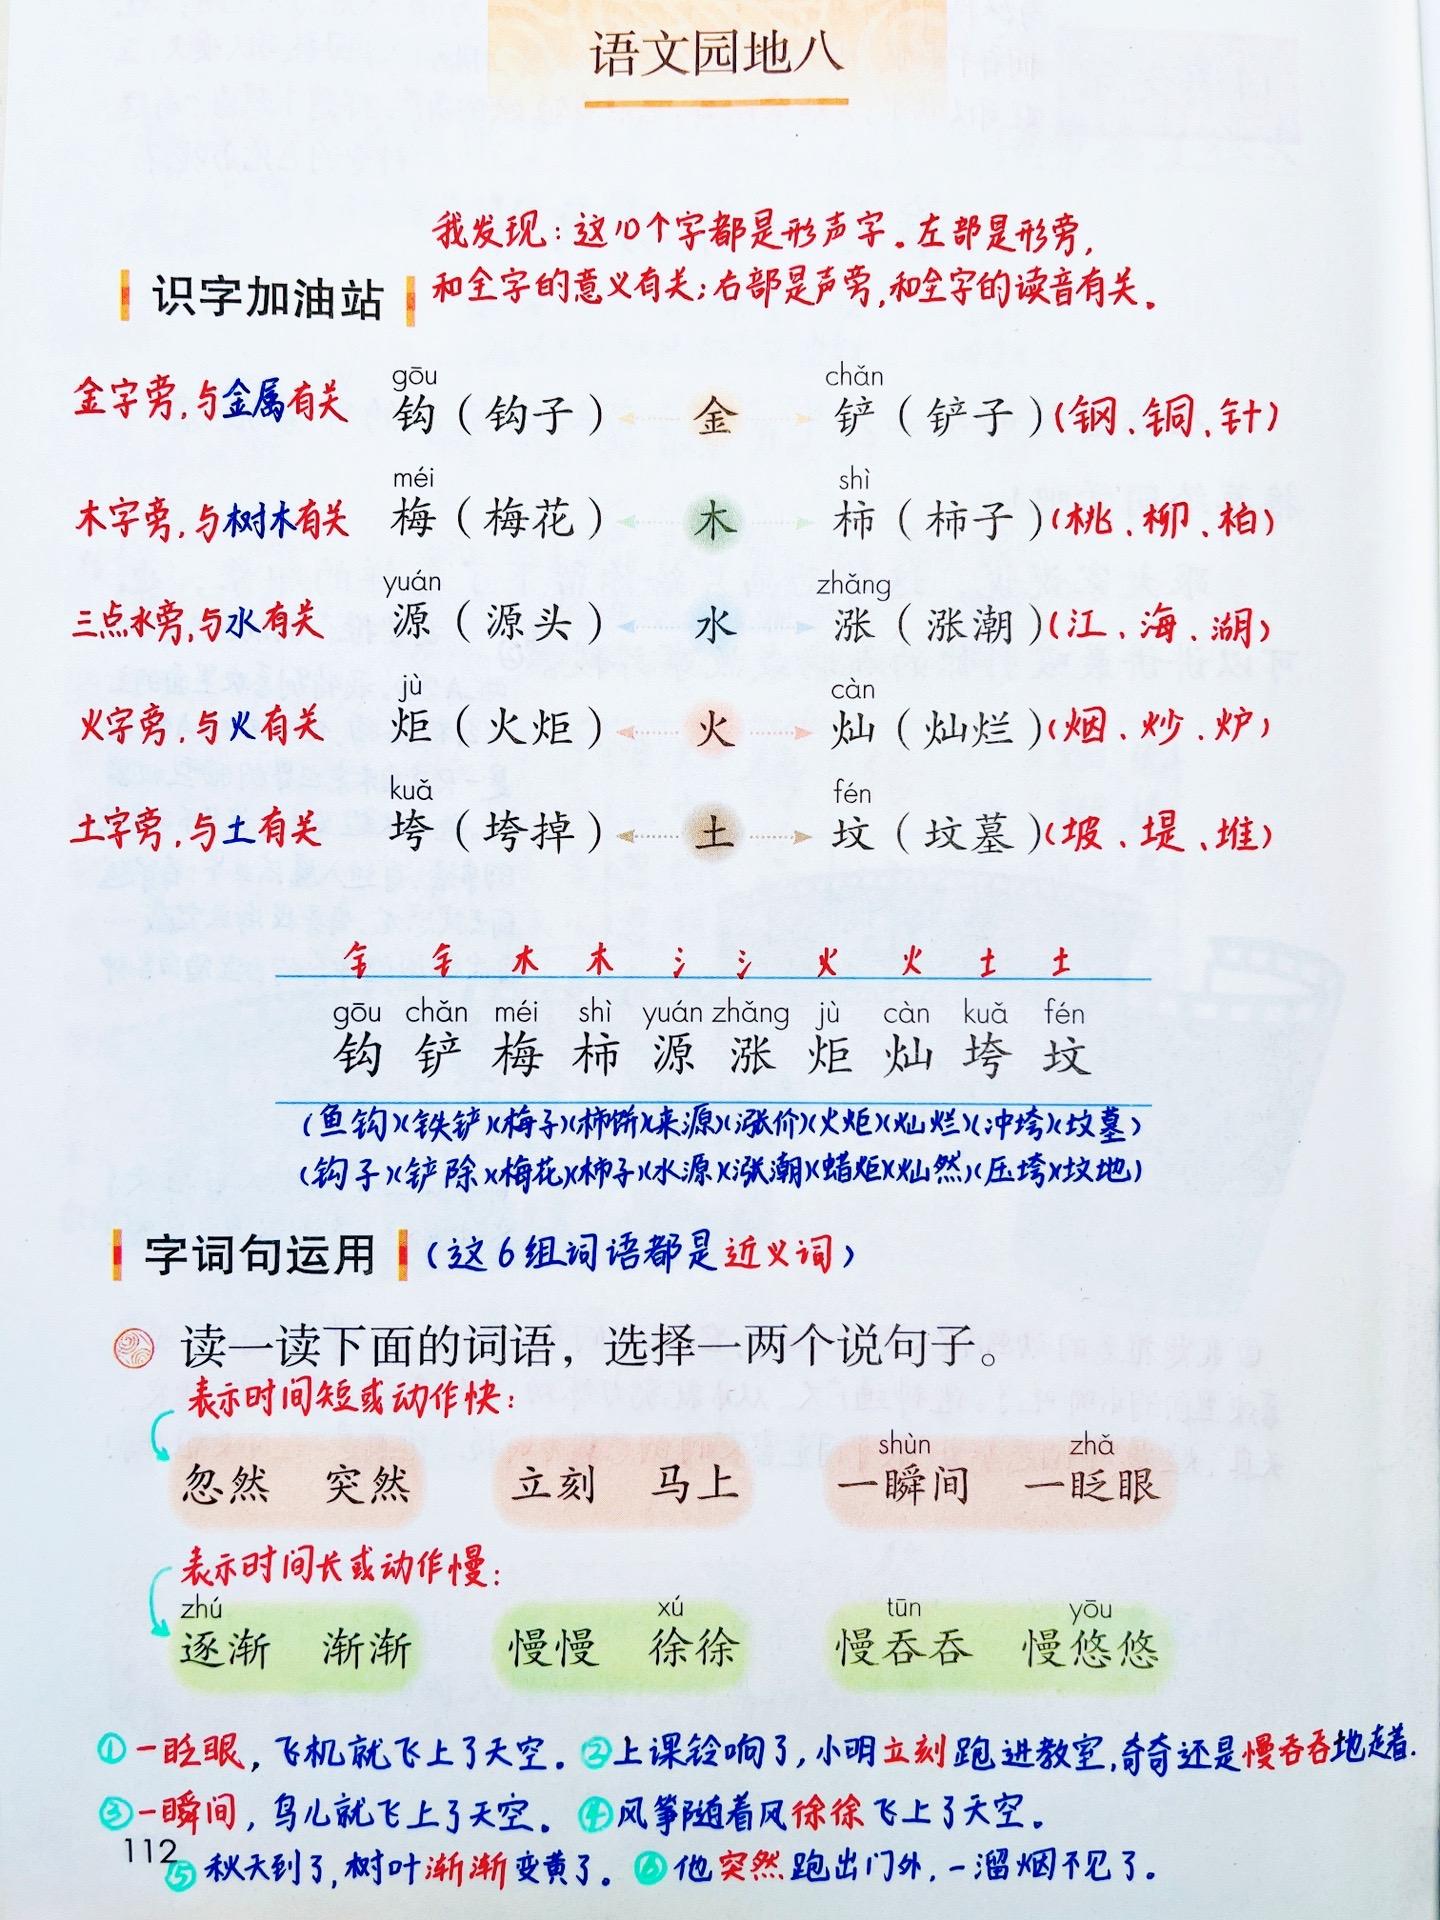 语文园地八
我发现：这10个字都是形声字。左部是形旁，
识字加油站
和全字的意义有关；右部是声旁，和全字的读音有关。
gōu chǎn
金字旁，与金属有关 钩（钩子） 金 铲（铲子）（钢、铜、针）
méi shì
木字旁，与树木有关 梅（梅花） 木 柿（柿子）（桃、柳、柏）
yuán zhǎng
三点水旁，与水有关 源（源头） 水 涨（涨潮）（江、海、湖）
jù càn
火字旁，与火有关 炬（火炬） 火 灿（灿烂）（烟、炒、炉）
kuǎ fén
土字旁，与土有关 垮（垮掉） 土 坟（坟墓）（坡、堤、堆）
钅 钅 木 木 氵 氵 火 火 土 土
gōu chǎn méi shì yuán zhǎng jù càn kuǎ fén
钩 铲 梅 柿 源 涨 炬 灿 垮 坟
（鱼钩）（铁铲）（梅子）（柿饼）（来源）（涨价）（火炬）（灿烂）（冲垮）（坟墓）
（钩子）（铲除）（梅花）（柿子）（水源）（涨潮）（蜡炬）（灿然）（压垮）（坟地）
字词句运用 （这6组词语都是近义词）
读一读下面的词语，选择一两个说句子。
表示时间短或动作快：
shùn zhǎ
忽然 突然 立刻 马上 一瞬间 一眨眼
表示时间长或动作慢：
zhú xú tūn yōu
逐渐 渐渐 慢慢 徐徐 慢吞吞 慢悠悠
①一眨眼，飞机就飞上了天空。②上课铃响了，小明立刻跑进教室，奇奇还是慢吞吞地走着.
③一瞬间，鸟儿就飞上了天空。④风筝随着风徐徐飞上了天空。
112
⑤秋天到了，树叶渐渐变黄了。⑥他突然跑出门外，一溜烟不见了。